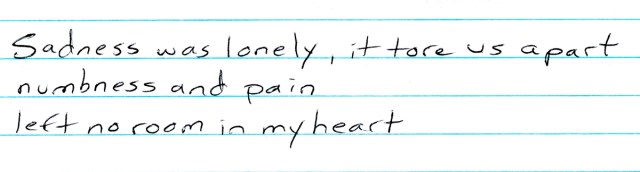 Sadness was lonely, it tore us apart
numbness and pain
left no room in my heart